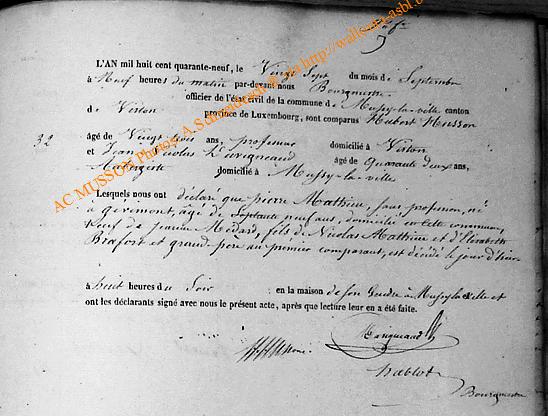 L'AN mil huit cent quarante-neuf, le Vingt Sept du mois de Septembre
à Neuf heures du matin par-devant nous Bourgmestre
officier de l'état civil de la commune de Mussy-la-ville, canton
de Virton province de Luxembourg, sont comparus Hubert Husson
32
âgé de Vingt ans, professeur domicilié à Virton
et Jean Nicolas âgé de Quarante deux ans,
Aubergiste domicilié à Mussy-la-ville
Lesquels nous ont déclaré que pierre Mathieu, sans profession, né
à gérimont, âgé de Septante neuf ans, domicilié en cette commune,
veuf de jeanne Médard, fils de Nicolas Mathieu et d'Elisabeth
et grand-père au premier comparant, est décédé le jour d'hier
à huit heures du Soir en la maison de son Gendre à Mussy-la-ville et
ont les déclarants signé avec nous le présent acte, après que lecture leur en a été faite.
Hablot
Bourgmestre
AC MUSSON Photos A. Schneidesch @ via http://wallonia-asbl.